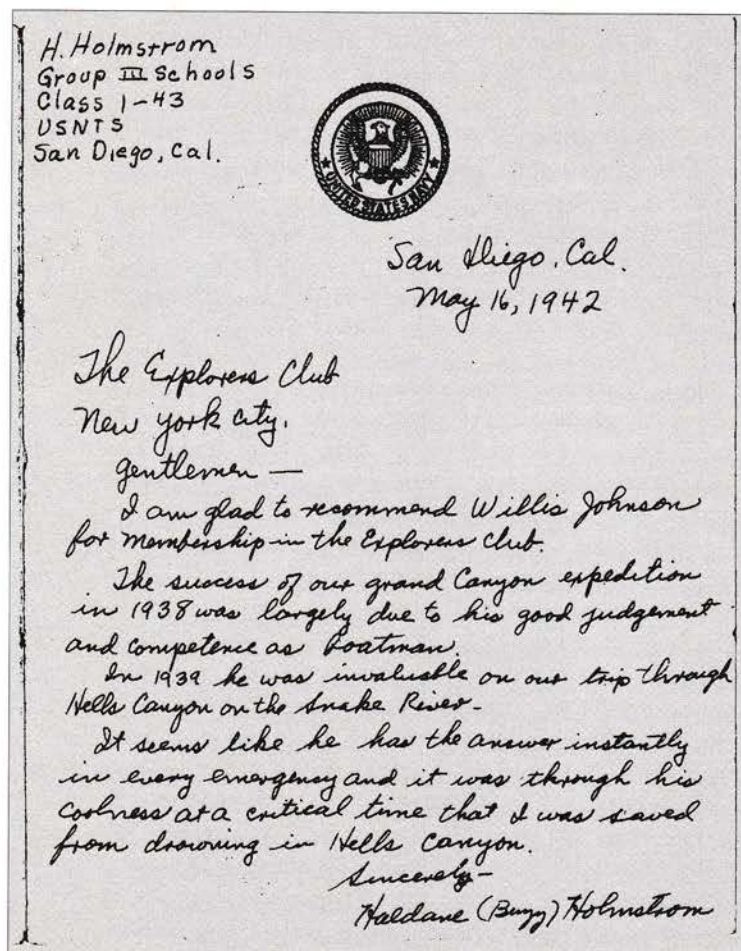 H. Holmstrom
Group III Schools
Class 1-43
USNTS
San Diego, Cal.
UNITED STATES NAVY
San Diego, Cal.
May 16, 1942
The Explorers Club
New York City.
Gentlemen —
I am glad to recommend Willis Johnson
for membership in the Explorers Club.
The success of our grand Canyon expedition
in 1938 was largely due to his good judgement
and competence as boatman.
In 1939 he was invaluable on our trip through
Hells Canyon on the Snake River-
It seems like he has the answer instantly
in every emergency and it was through his
coolness at a critical time that I was saved
from drowning in Hells Canyon.
Sincerely-
Haldane (Buzz) Holmstrom